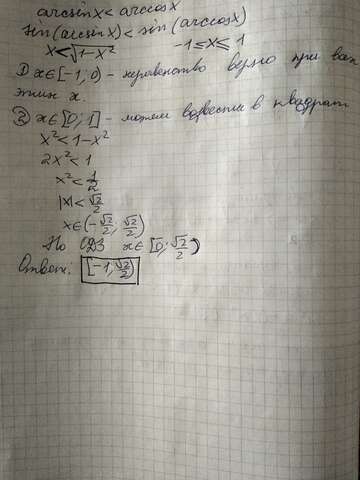 arcsinx < arccosx
sin(arcsinx) < sin(arccosx)
x < √1-x² -1 ≤ x ≤ 1
① x∈[-1; 0) - неравенство верно при всех
этих x.
② x∈[0; 1] - можем возвести в квадрат
x² < 1-x²
2x² < 1
x² < 1/2
|x| < √2/2
x∈(-√2/2; √2/2)
По ОДЗ x∈[0; √2/2)
Ответ: [-1; √2/2)